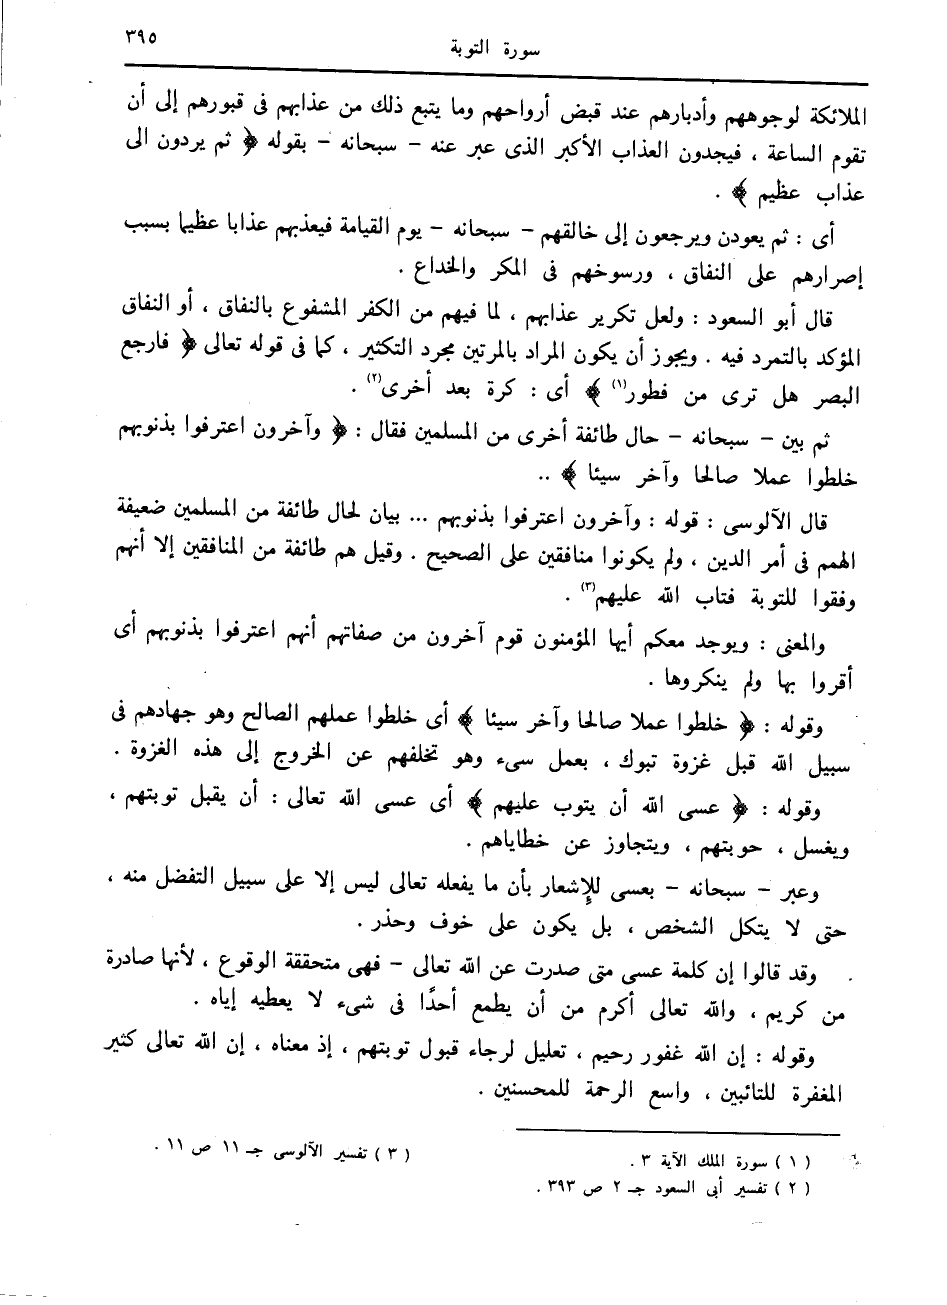 سورة التوبة
٣٩٥
الملائكة لوجوههم وأدبارهم عند قبض أرواحهم وما يتبع ذلك من عذابهم فى قبورهم إلى أن
تقوم الساعة ، فيجدون العذاب الأكبر الذى عبر عنه – سبحانه – بقوله ﴿ ثم يردون الى
عذاب عظيم ﴾ .
أى : ثم يعودن ويرجعون إلى خالقهم – سبحانه – يوم القيامة فيعذبهم عذابا عظيما بسبب
إصرارهم على النفاق ، ورسوخهم فى المكر والخداع .
قال أبو السعود : ولعل تكرير عذابهم ، لما فيهم من الكفر المشفوع بالنفاق ، أو النفاق
المؤكد بالتمرد فيه . ويجوز أن يكون المراد بالمرتين مجرد التكثير ، كما فى قوله تعالى ﴿ فارجع
البصر هل ترى من فطور(١) ﴾ أى : كرة بعد أخرى(٢) .
ثم بين – سبحانه – حال طائفة أخرى من المسلمين فقال : ﴿ وآخرون اعترفوا بذنوبهم
خلطوا عملا صالحا وآخر سيئا ﴾ ..
قال الآلوسى : قوله : وآخرون اعترفوا بذنوبهم ... بيان لحال طائفة من المسلمين ضعيفة
الهمم فى أمر الدين ، ولم يكونوا منافقين على الصحيح . وقيل هم طائفة من المنافقين إلا أنهم
وفقوا للتوبة فتاب الله عليهم(٣) .
والمعنى : ويوجد معكم أيها المؤمنون قوم آخرون من صفاتهم أنهم اعترفوا بذنوبهم أى
أقروا بها ولم ينكروها .
وقوله : ﴿ خلطوا عملا صالحا وآخر سيئا ﴾ أى خلطوا عملهم الصالح وهو جهادهم فى
سبيل الله قبل غزوة تبوك ، بعمل سىء وهو تخلفهم عن الخروج إلى هذه الغزوة .
وقوله : ﴿ عسى الله أن يتوب عليهم ﴾ أى عسى الله تعالى : أن يقبل توبتهم ،
ويغسل ، حوبتهم ، ويتجاوز عن خطاياهم .
وعبر – سبحانه – بعسى للإشعار بأن ما يفعله تعالى ليس إلا على سبيل التفضل منه ،
حتى لا يتكل الشخص ، بل يكون على خوف وحذر .
وقد قالوا إن كلمة عسى متى صدرت عن الله تعالى – فهى متحققة الوقوع ، لأنها صادرة
من كريم ، والله تعالى أكرم من أن يطمع أحدًا فى شىء لا يعطيه إياه .
وقوله : إن الله غفور رحيم ، تعليل لرجاء قبول توبتهم ، إذ معناه ، إن الله تعالى كثير
المغفرة للتائبين ، واسع الرحمة للمحسنين .
( ١ ) سورة الملك الآية ٣ .
( ٢ ) تفسير أبى السعود جـ ٢ ص ٣٩٣ .
( ٣ ) تفسير الآلوسى جـ ١١ ص ١١ .